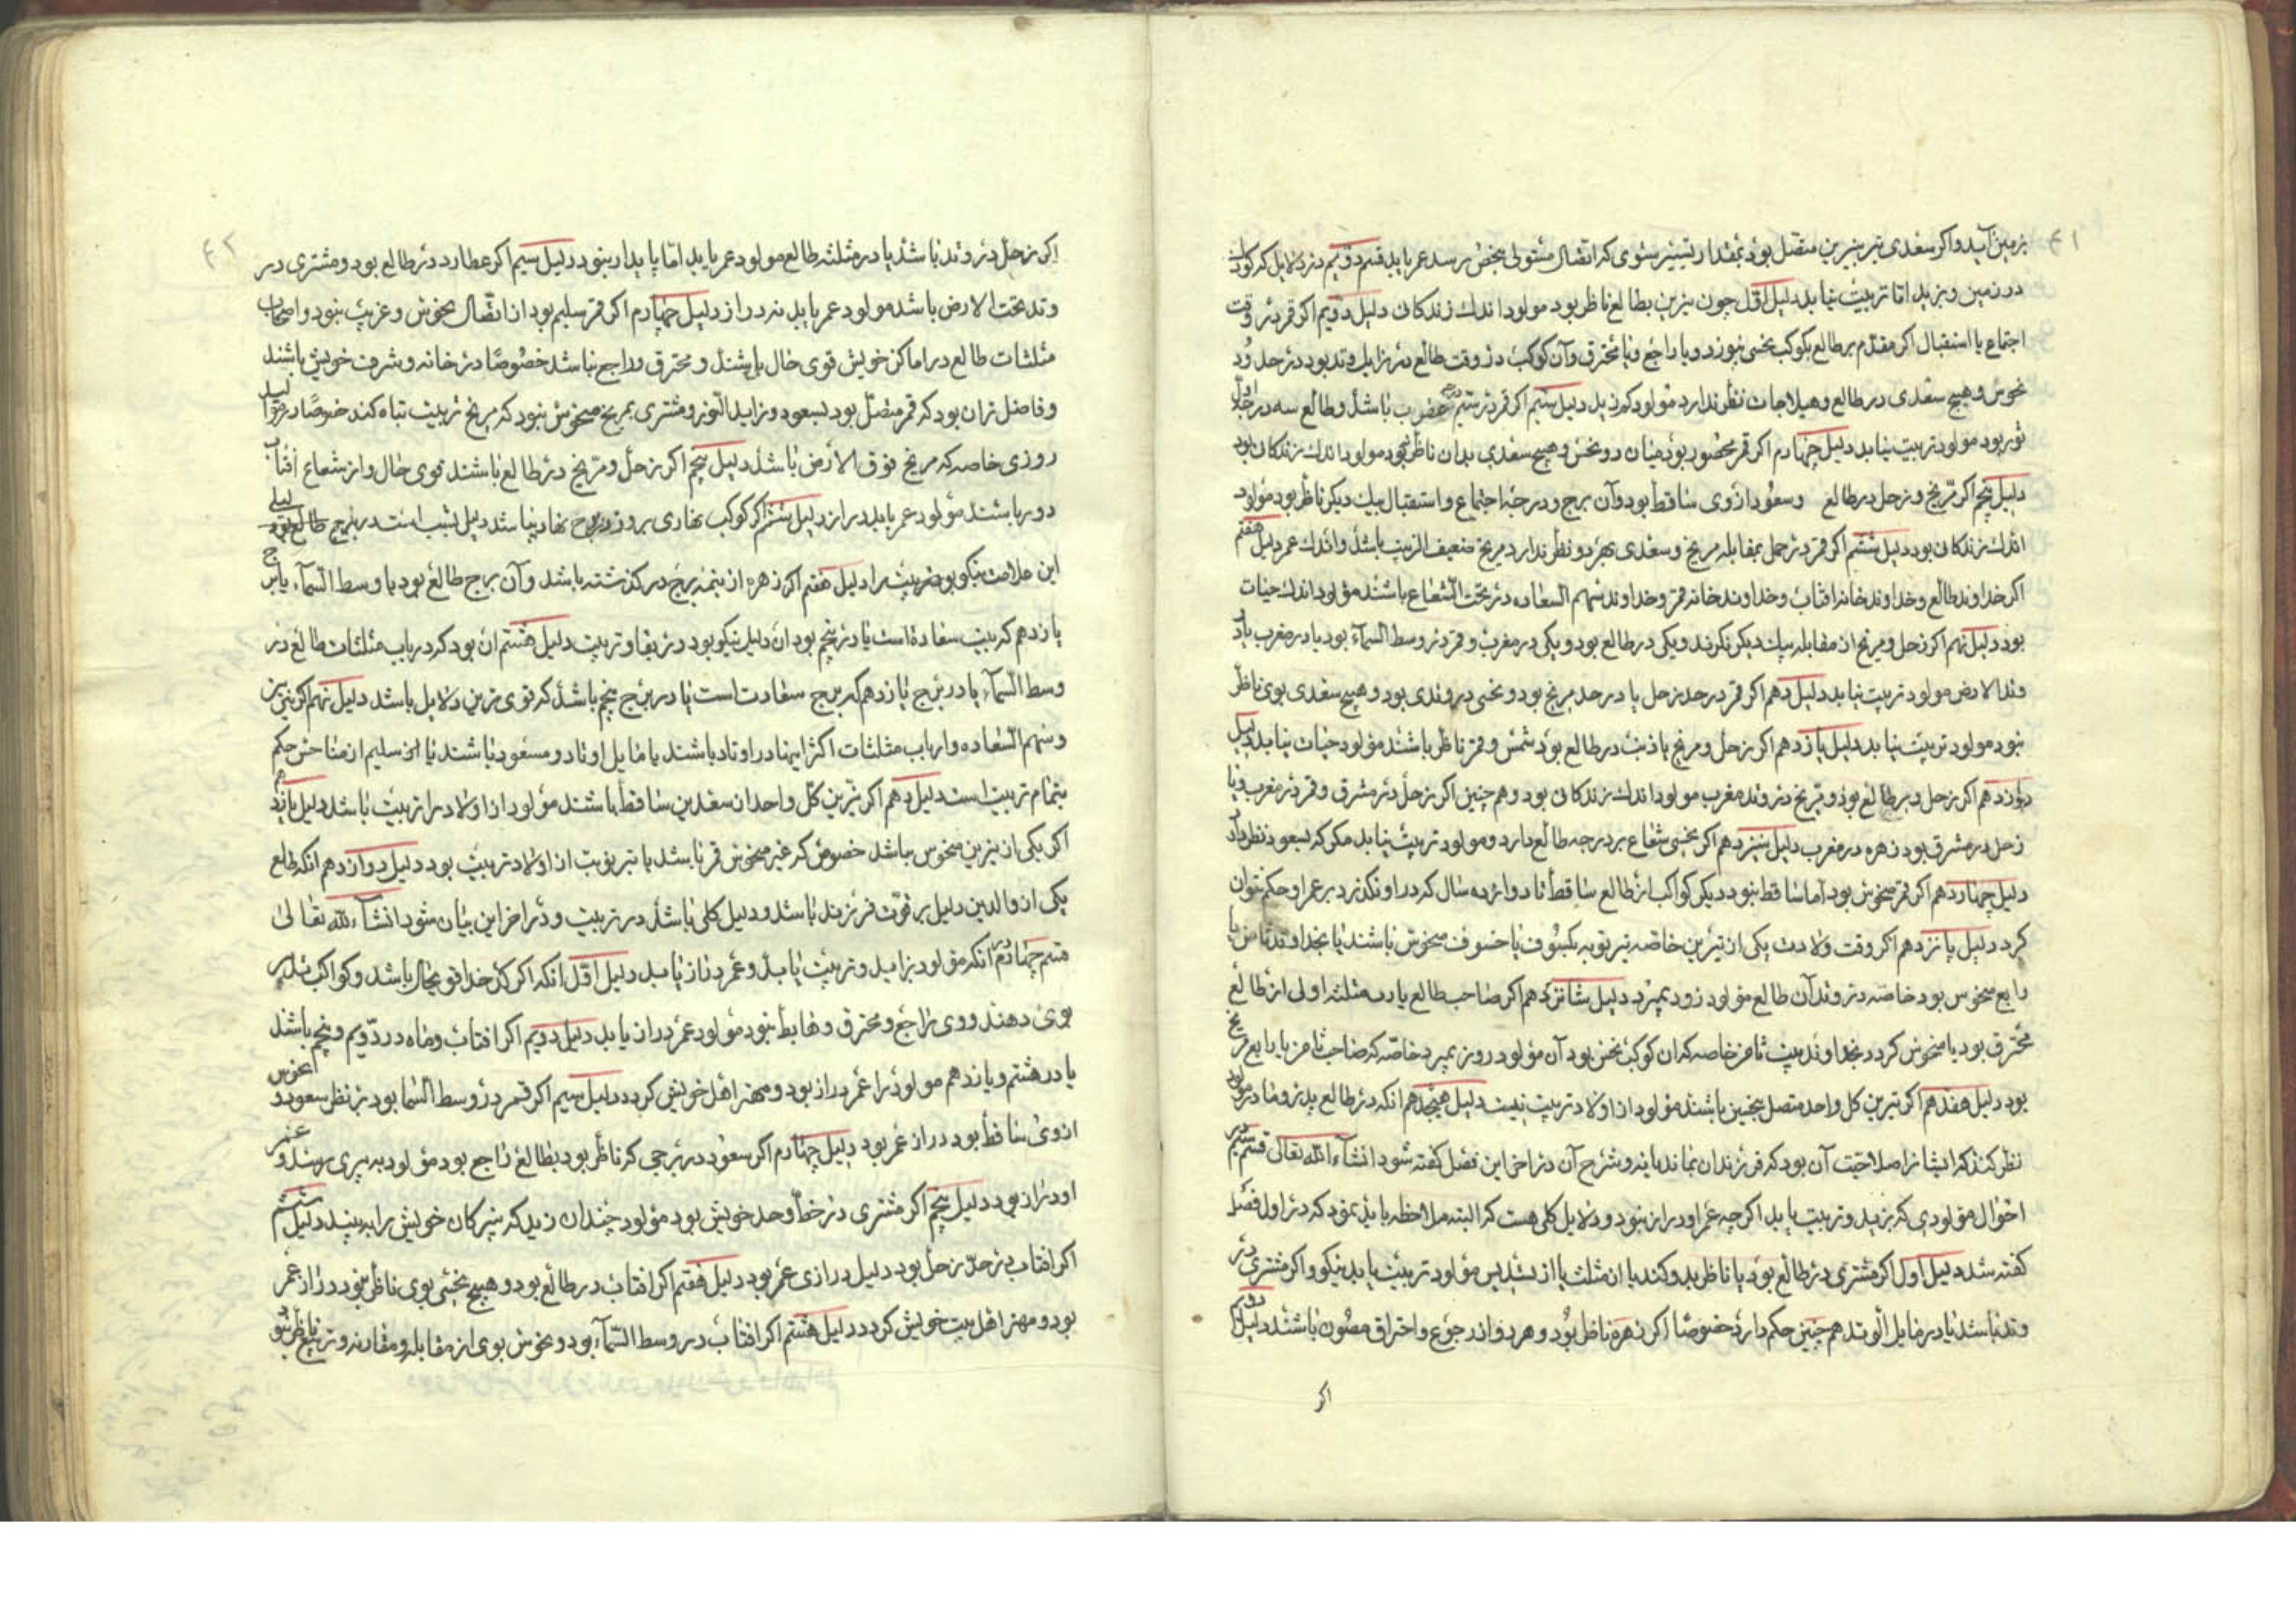 ۴۱
بزمین آید و اگر سعدی بر نیرین متصل بود بمقدار تسییر سوی که اتصال مستولی بنحس رسد عمر یابد قسم دویم در دلایل که کودک
در زمین و بزید اما تربیت نیابد دلیل اول چون نیرین بطالع ناظر بود مولود اندک زندکانی دلیل دویم اکر قمر در وقت
اجتماع یا استقبال اکر مقدم بر طالع بکوکب نحسی بیوندد و یا راجع و یا محترق و آن کوکب در وقت طالع در زایل وتد بود در حدود
نحوس و هیچ سعدی در طالع و هیلاجات نظر ندارد مولود کم زید دلیل سیم اکر قمر در سیم درجه عقرب باشد و طالع سه درجه اول
ثور بود مولود تربیت نیابد دلیل چهارم اکر قمر محصور بود میان دو نحس و هیچ سعدی بدان ناظر نبود مولود اندک زندکانی بود
دلیل پنجم اکر مریخ و زحل در طالع و سعود از وی ساقط بود و آن برج و درجه اجتماع و استقبال بیک دیکر ناظر بود مولود
اندک زندکانی بود دلیل ششم اکر قمر در حمل بمقابله مریخ و سعدی بهر دو نظر ندارد مریخ ضعیف التربیت باشد و اندک عمر دلیل هفتم
اکر خداوند طالع و خداوند خانه افتاب و خداوند خانه قمر و خداوند سهم السعاده در تحت الشعاع باشند مولود اندک حیات
بود دلیل نهم اکر زحل و مریخ از مقابله بیک دیکر نکرند و یکی در طالع بود و یکی در مغرب و قمر در وسط السمآء بود یا در مغرب یا در
وتد الارض مولود تربیت نیابد دلیل دهم اکر قمر در حد زحل یا در حد مریخ بود و نحسی در وتدی بود و هیچ سعدی بوی ناظر
نبود مولود تربیت نیابد دلیل یازدهم اکر زحل و مریخ یا ذنب در طالع بود شمس و قمر ناظر باشند مولود حیات نیابد دلیل
دوازدهم اکر زحل در طالع بود و مریخ در وتد مغرب مولود اندک زندکانی بود و هم چنین اکر زحل در مشرق و قمر در مغرب و یا
زحل در مشرق بود زهره در مغرب دلیل سیزدهم اکر نحسی شعاع بر درجه طالع دارد و مولود تربیت نیابد مکر که سعود نظر دارد
دلیل چهاردهم اکر قمر منحوس بود اما ساقط نبود دیکر کواکب از طالع ساقط تا دوازده سال که در او نکذرد بر عمر او حکم نتوان
کرد دلیل پانزدهم اکر وقت ولادت یکی از نیرین خاصه نیر نوبه بکسوف یا خسوف منحوس باشند یا بخداوند ثامن یا
رابع منحوس بود خاصه در وتد آن طالع مولود زود بمیرد دلیل شانزدهم اکر صاحب طالع یا رب مثلثه اولی از طالع
محترق بود یا منحوس کردد بخداوند بیت ثامن خاصه که آن کوکب نحس بود آن مولود روز بمیرد خاصه که صاحب ثامن یا رابع مریخ
بود دلیل هفدهم اکر نیرین کل واحد متصل بنحسین باشند مولود از اولاد تربیت نیست دلیل هیجدهم انکه در طالع پدر و مادر مولود
نظر کنند که ایشانرا صلاحیت آن بود که فرزندان بماند یا نه و شرح آن در اخر این فصل کفته شود انشآءالله تعالی قسم سیم در
احوال مولودی که بزید و تربیت یابد اکر چه عمر او دراز نبود و دلایل کلی هست که البته ملاحظه باید نمود که در اول فصل
کفته شد دلیل اول اکر مشتری در طالع بود یا ناظر بدو کند یا از مثلث یا از تسدیس مولود تربیت یابد نیکو و اکر مشتری در
وتد باشد یا در مایل الوتد هم چنین حکم دارد خصوصا اکر زهره ناظر بود و هر دو از رجوع و احتراق مصون باشند دلیل دویم
اکر
۴۲
اکر زحل در وتد باشد یا در مثلثه طالع مولود عمر یابد اما پایدار نبود دلیل سیم اکر عطارد در طالع بود و مشتری در
وتد تحت الارض باشد مولود عمر یابد نه دراز دلیل چهارم اکر قمر سلیم بود از اتصال نحوس و غریب نبود و اصحاب
مثلثات طالع در اماکن خویش قوی حال باشند و محترق و راجع نباشد خصوصا در خانه و شرف خویش باشند
و فاضل تر آن بود که قمر متصل بود بسعود و زاید النور و مشتری بمریخ منحوس نبود که مریخ تربیت تباه کند خصوصا در موالید
روزی خاصه که مریخ فوق الارض باشد دلیل پنجم اکر زحل و مریخ در طالع باشند قوی حال و از شعاع آفتاب
دور باشند مولود عمر یابد دراز دلیل ششم اکر کوکب نهاری بروز در برج نهار نباشد دلیل بشب است در برج طالع بود لیلی
این علامت نیکو بود تربیت را دلیل هفتم اکر زهره از نیمه برج در کذشته باشد و آن برج طالع بود یا وسط السمآء یا برج
یازدهم که بیت سعاده است یا در پنجم بود آن دلیل نیکو بود در بقا و تربیت دلیل هشتم آن بود که درباب مثلثات طالع در
وسط السمآء یا در برج یازدهم که برج سعادت است یا در برج پنجم باشد که قوی ترین دلایل باشد دلیل نهم اکر نیرین
و سهم السعاده و ارباب مثلثات اکثر اینها در اوتاد باشند یا مایل اوتاد و مسعود باشند یا سلیم از مناحس حکم
بتمام تربیت است دلیل دهم اکر نیرین کل واحد از سعدین ساقط باشند مولود از اولاد را تربیت باشد دلیل یازدهم
اکر یکی از نیرین منحوس باشد خصوص که غیر منحوس قمر باشد یا نیر نوبت از اولاد تربیت بود دلیل دوازدهم انکه طالع
یکی از والدین دلیل بر فوت فرزند باشد و دلیل کلی باشد در تربیت و در اخر این بیان شود انشآءالله تعالی
قسم چهارم در انکه مولود بزاید و تربیت یابد و عمر دراز یابد دلیل اول انکه اکر کدخدا قوی حال باشد و کواکب تدبیر
بوی دهند و وی راجع و محترق و هابط نبود مولود عمر دراز یابد دلیل دویم اکر افتاب و ماه در دویم و پنجم باشند
یا در هشتم و یازدهم مولود را عمر دراز بود و مهتر اهل خویش کردد دلیل سیم اکر قمر در وسط السما بود بنظر سعود و نحوس
از وی ساقط بود دراز عمر بود دلیل چهارم اکر سعود در برجی که ناظر بود بطالع راجع بود مولود به پیری رسد و عمر
او دراز بود دلیل پنجم اکر مشتری در خط و حد خویش بود مولود چندان زید که نبیرکان خویش را به بیند دلیل ششم
اکر افتاب در حد زحل بود دلیل درازی عمر بود دلیل هفتم اکر افتاب در طالع بود و هیچ نحسی بوی ناظر نبود دراز عمر
بود و مهتر اهل بیت خویش کردد دلیل هشتم اکر افتاب در وسط السمآء بود و نحوس بوی از مقابله و مقارنه و تربیع ناظر نبود